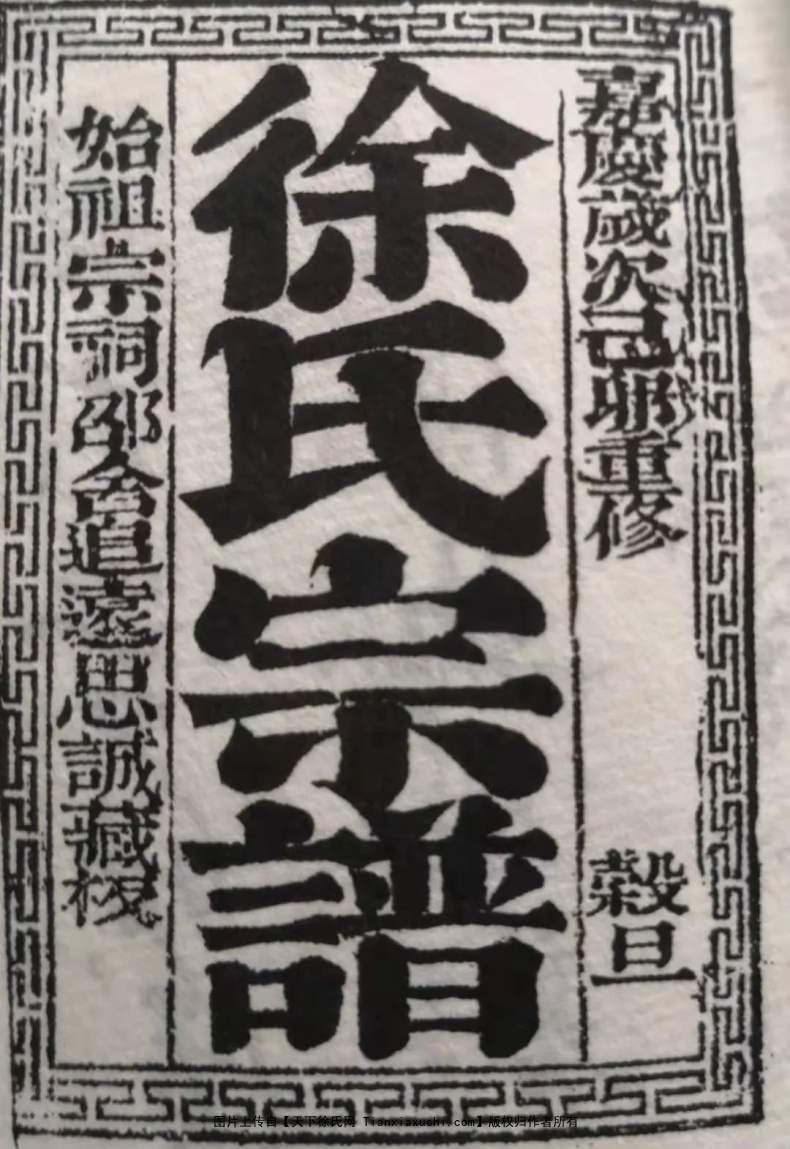 嘉慶歲次己卯重修 穀旦
徐氏宗譜
始祖宗祠邵舍追遠思誠藏板
图片上传自【天下徐氏网 Tianxiaxushi.com】版权归作者所有